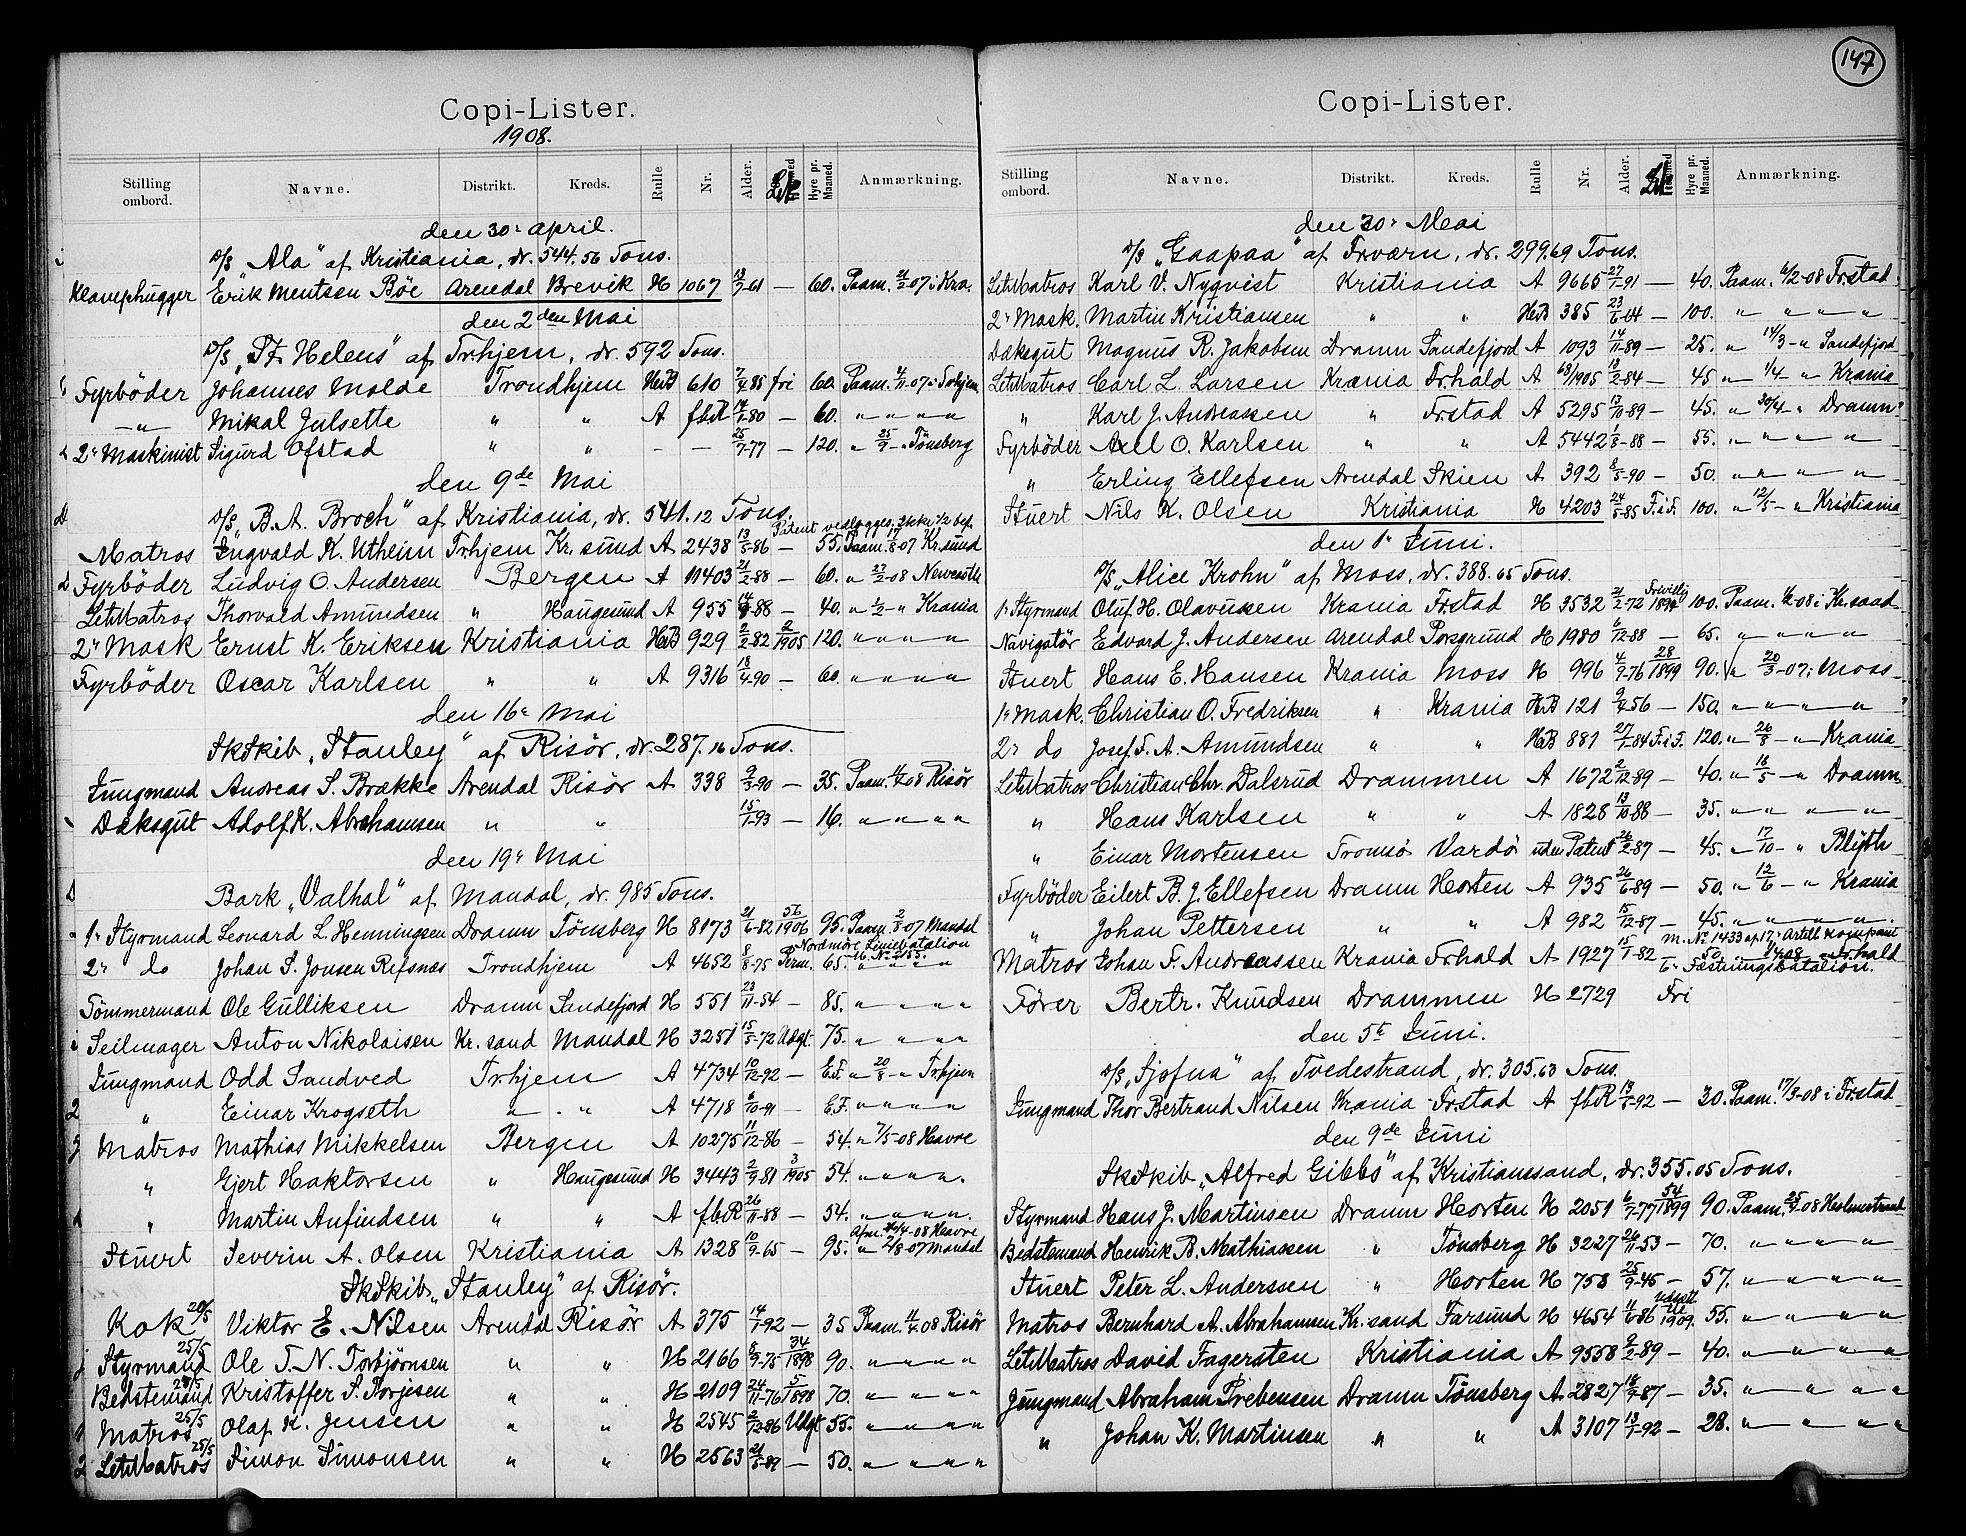 147
Copi-Lister.
1908.
Stilling ombord. Navne. Distrikt. Kreds. Rulle Nr. Alder. Hyre pr. Maaned. Anmærkning.
den 30' april.
D/S „Ala" af Kristiania, dr. 544.56 Tons.
Erik Mentsen Böe Arendal Brevik H 1067 13/7-61 — 60. Paam. 21/2-07 i Kra.
den 2den Mai
D/S „St. Helens" af Trhjem, dr. 592 Tons.
Fyrböder Johannes Molde Trondhjem HB 610 7/4-85 fri 60. Paam. 4/11-07 i Trhjem
—"— Mikal Julsette " " A fbR 14/7-80 — 60. " " " "
2' Maskinist Sigurd Ofstad " " — — 25/7-77 — 120. " 25/9 - " Tönsberg
den 9de Mai
D/S „B. A. Broch" af Kristiania, dr. 541.12 Tons.
Patent vedlogges, ikke 1/2 bef.
Matros Ingvald K. Utheim Trhjem Kr. sund A 2438 13/5-86 — 55. Paam. 17/8-07 Kr. sund
Fyrböder Ludvig O. Andersen Bergen A 11403 21/2-88 — 60. " 23/2-08 Newcastle
LetMatros Thorvald Amundsen " Haugesund A 955 -88 — 40. " 1/2 - " Krania
2' Mask Ernst K. Eriksen Kristiania HB 929 2/2-82 2/1905 120. " " " "
Fyrböder Oscar Karlsen " " A 9316 18/4-90 — 60. " " " "
den 16' Mai
SkSkib „Stanley" af Risör, dr. 287.16 Tons.
Jungmand Andreas S. Brække Arendal Risör A 338 9/3-90 — 35. Paam. 08 Risör
Dæksgut Adolf K. Abrahamsen " " 15/1-93 — 16. " " " "
den 19' Mai
Bark „Valhal" af Mandal, dr. 985 Tons.
1' Styrmand Leonard L. Henningsen Dramn Tönsberg H 8173 21/6-82 56/1906 95. Paam. 2/8-07 Mandal
Nordmöre Liniebatalion
2' do Johan S. Jonsen Rifsnæs Trondhjem A 4652 8/8-75 Perm. 65. 16. No 2155. " " "
Tömmermand Ole Gulliksen Dramn Sandefjord H 551 23/11-54 — 85. " " " "
Seilmager Anton Nikolaisen Kr. sand Mandal H 3251 15/5-72 Udgt. 75. " " " "
Jungmand Odd Sandved Trhjem A 4734 10/12-92 — E.F. " 20/8 - " Trhjem
" Einar Krogseth " " A 4718 6/10-91 — E.F. " " " "
Matros Mathias Mikkelsen Bergen A 10275 11/12-86 — 54. " 7/5-08 Havre
" Gjert Haktorsen " Haugesund H 3443 2/9-81 3/1905 54. " " " "
" Martin Anfindsen " " A fbR 26/11-88 — 54. " " " "
Afm. 16/4-08 Havre
Stuert Severin A. Olsen Kristiania A 1328 10/9-65 — 95. " 2/8-07 Mandal
SkSkib „Stanley" af Risör.
Kok 20/5 Viktor E. Nilsen Arendal Risör A 375 14/7-92 — 35 Paam. 08 Risör
Styrmand 25/5 Ole T. N. Torbjörnsen " " H 2166 8/9-75 34/1898 90. " " " "
Bedstemand 25/5 Kristoffer S. Torjesen " " H 2109 24/11-76 5/1898 70. " " " "
Matros 25/5 Olaf K. Jensen " " H 2545 2/12-86 Udgt 55. " " " "
LetMatros 25/5 Simon Simonsen " " H 2563 21/5-89 — 50. " " " "
Copi-Lister.
Stilling ombord. Navne. Distrikt. Kreds. Rulle Nr. Alder. Hyre pr. Maaned. Anmærkning.
den 30' Mai
D/S „Gaapaa" af Frværn, dr. 299.69 Tons.
LetMatros Karl V. Nyqvist Kristiania A 9665 27/1-91 — 40. Paam. 6/2-08 Frstad
2' Mask. Martin Kristiansen " " HB 385 23/6-64 — 100. " " " "
Dæksgut Magnus R. Jakobsen Dramn Sandefjord A 1093 14/11-89 — 25. " 14/3 - " Sandefjord
LetMatros Carl L. Larsen Krania Frhald A 68/1905 13/2-84 — 45 " 1/4 - " Krania
" Karl J. Andreassen " Frstad A 5295 13/10-89 — 45. " 30/4 - " Dramn
Fyrböder Axel O. Karlsen " " A 5442 1/8-88 — 55. " " " "
" Erling Ellefsen Arendal Skien A 392 8/5-90 — 50. " " " "
Stuert Nils K. Olsen Kristiania H 4203 24/5-85 F.i F. 100. " 12/5 - " Kristiania
den 1' Juni.
D/S „Alice Krohn" af Moss, dr. 388.65 Tons.
1' Styrmand Oluf H. Olavussen Krania Frstad H 3532 21/2-72 Frivillig 1894 100. Paam. 08 i Kr. sand
Navigatör Edvard J. Andersen Arendal Porsgrund H 1980 6/12-88 — 65. " " " "
Stuert Hans E. Hansen Krania Moss H 996 4/9-76 28/1899 90. " 20/3-07 i Moss
1' Mask. Christian O. Fredriksen " Krania HB 121 9/4-56 — 150. " " " "
2' do Josef F. A. Amundsen " " HB 881 27/1-84 F.i F. 120. " 26/8 - " Krania
LetMatros Christian Chr. Dalsrud Drammen A 1672 2/12-89 — 40. " 18/5 - " Dramn
" Hans Karlsen " " A 1828 13/10-88 — 35. " " " "
" Einar Mortensen Tromsö Vardö uden Patent 26/2-87 — 45. " 17/10 - " Blyth
Fyrböder Eilert B. J. Ellefsen Dramn Horten A 935 26/6-89 — 50. " 12/6 - " Krania
" Johan Pettersen " " A 982 15/12-87 — 45. " " " "
M. No 1433 af 17' Artill kompani
Matros Johan F. Andreassen Krania Frhald A 1927 15/7-82 — 50. 08 Frhald
6' Fæstningsbatalion.
Förer Bertr. Knudsen Drammen H 2729 Fri
den 5te Juni.
D/S „Sjofna" af Tvedestrand, dr. 305.63 Tons.
Jungmand Thor Bertrand Nilsen Krania Frstad A fbR 13/6-92 — 30. Paam. 17/3-08 i Frstad
den 9de Juni
SkSkib „Alfred Gibbs" af Kristianssand, dr. 355.05 Tons.
Styrmand Hans J. Martinsen Dramn Horten H 2051 6/7-77 54/1899 90. Paam. 08 Holmestrand
Bedstemand Henrik B. Mathiassen " Tönsberg H 3227 26/11-53 — 70. " " " "
Stuert Peter L. Anderssen " Horten H 758 25/9-45 — 57. " " " "
Matros Bernhard A. Abrahamsen Kr. sand Farsund H 4654 11/6-86 Udsatt til 1909. 55. " " " "
LetMatros David Fagersten Kristiania A 9558 9/2-89 — 40. " " " "
Jungmand Abraham Prebensen Dramn Tönsberg A 2827 18/9-87 — 35. " " " "
" Johan K. Martinsen " " A 3107 13/1-92 — 28. " " " "